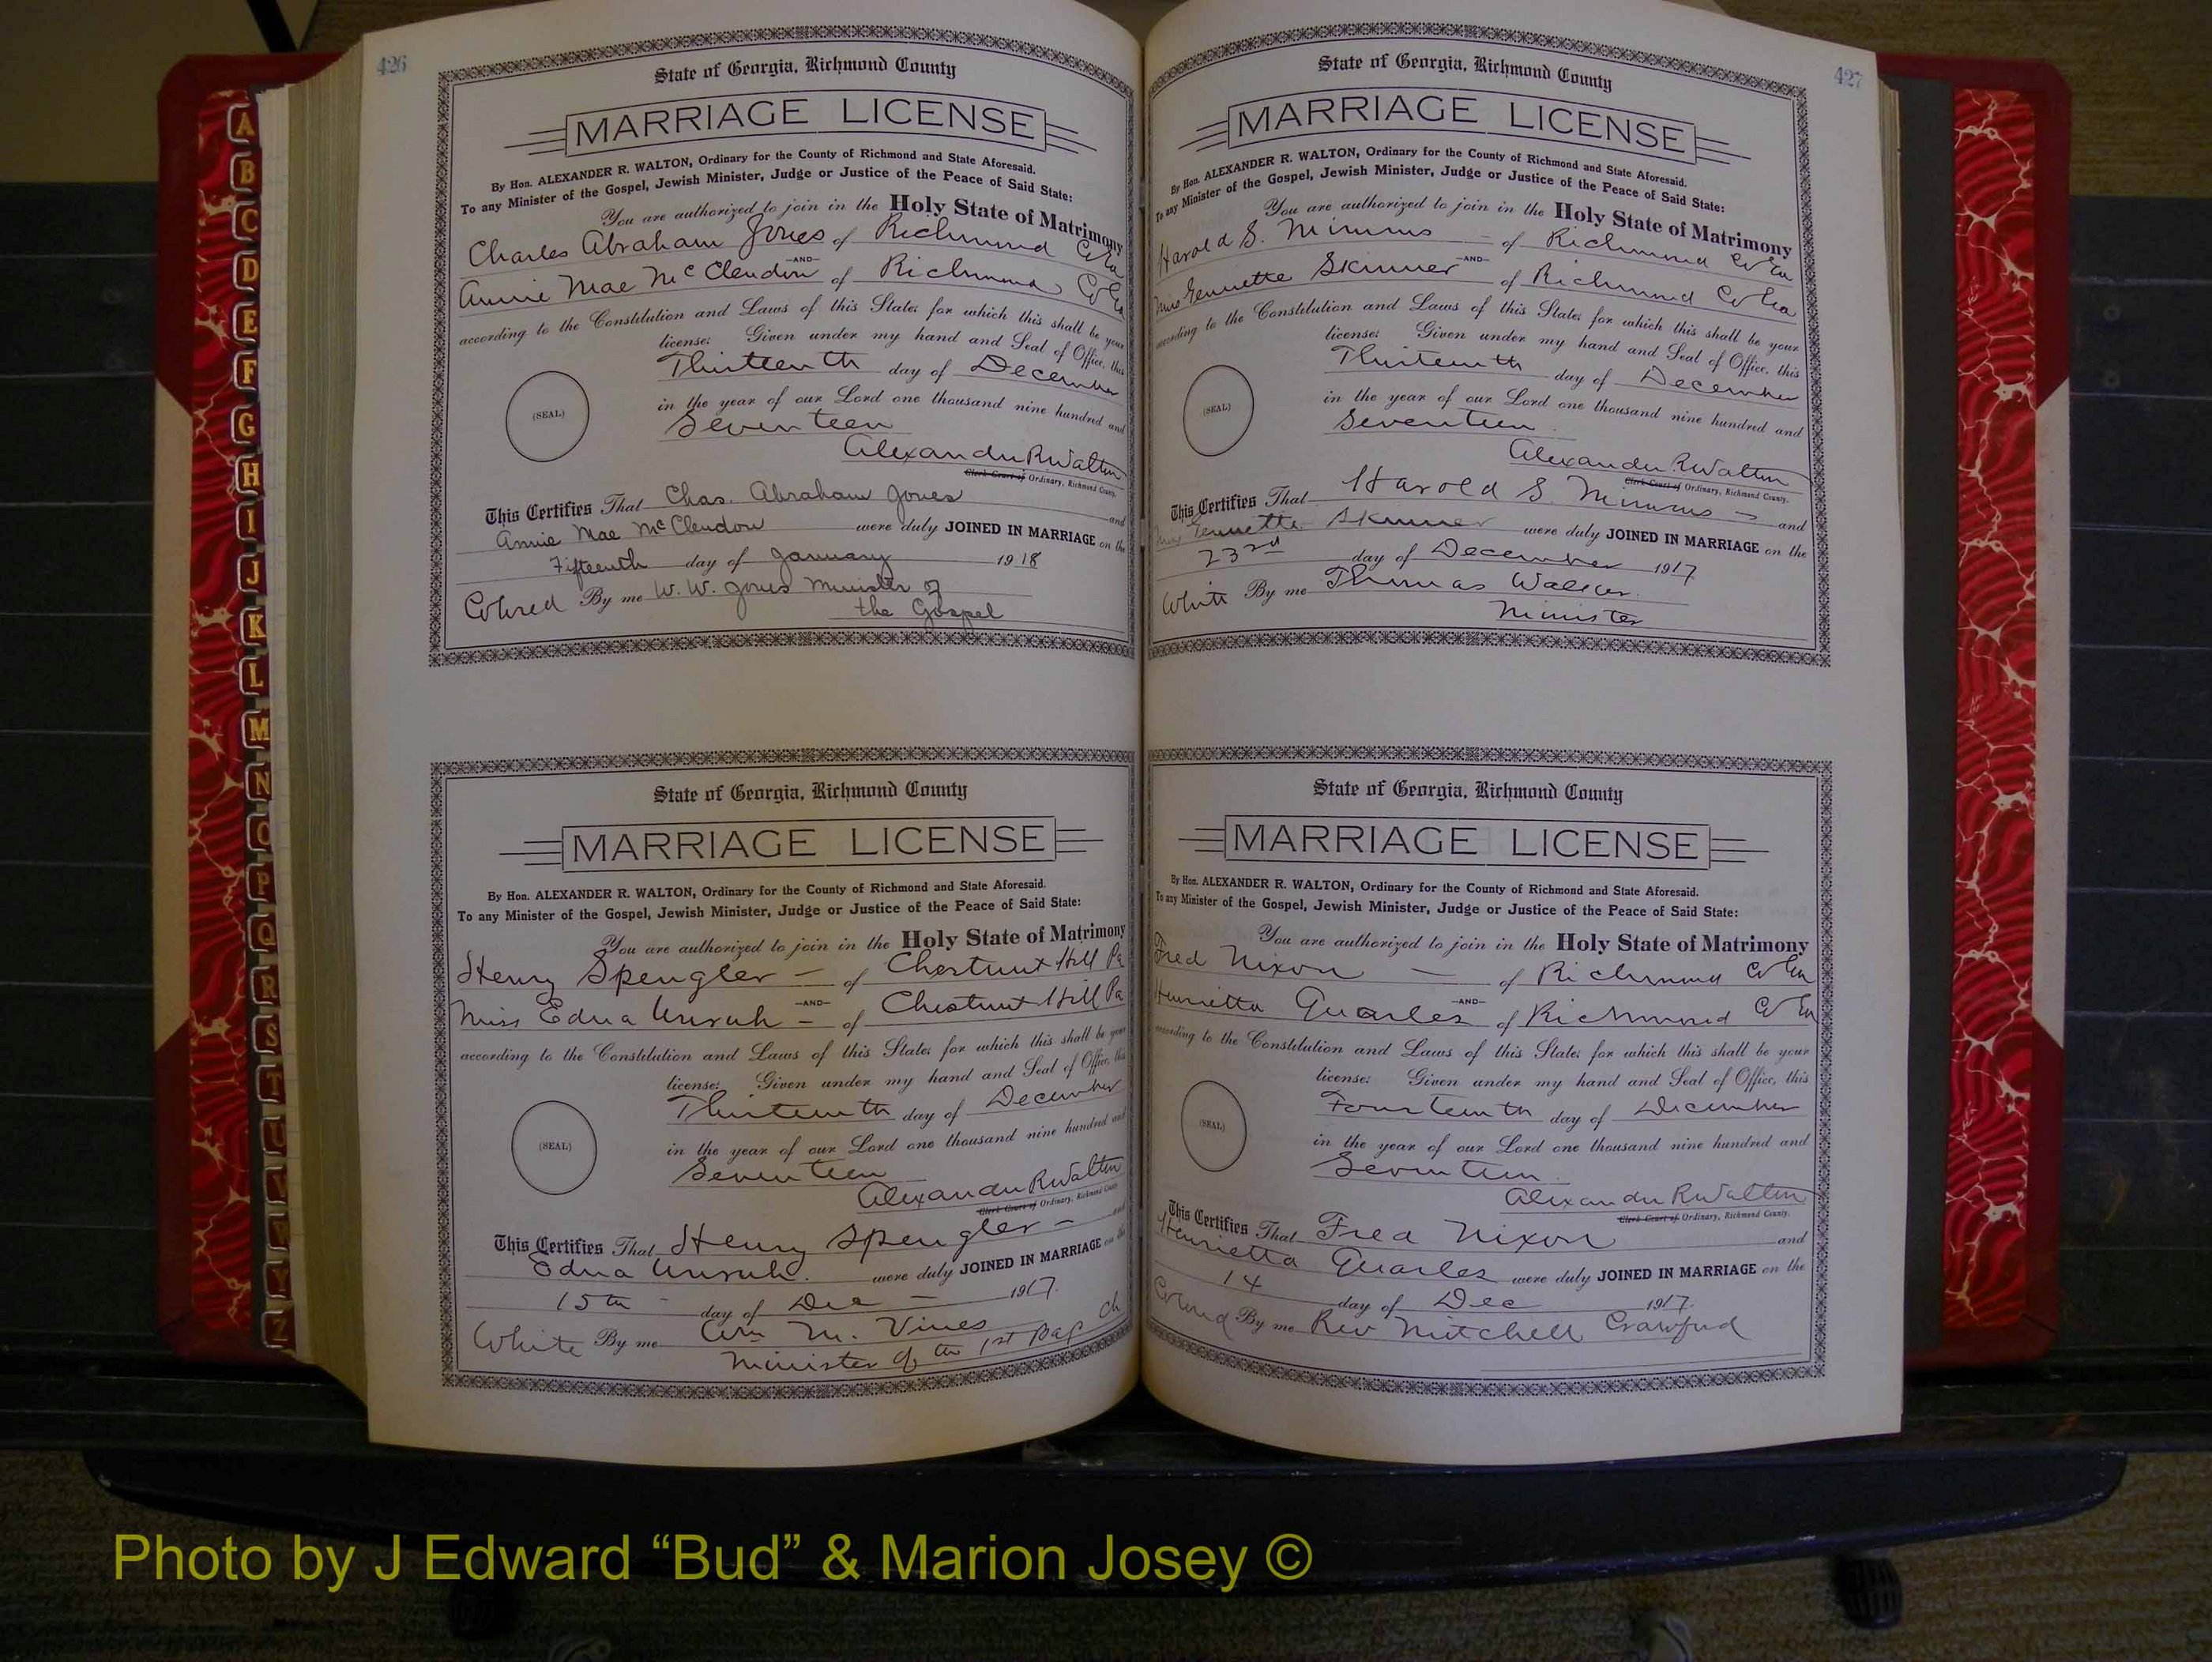 426
State of Georgia, Richmond County
MARRIAGE LICENSE
By Hon. ALEXANDER R. WALTON, Ordinary for the County of Richmond and State Aforesaid.
To any Minister of the Gospel, Jewish Minister, Judge or Justice of the Peace of Said State:
You are authorized to join in the Holy State of Matrimony
Charles Abraham Jones of Richmond Co Ga
—AND—
Annie Mae McClendon of Richmond Co Ga
according to the Constitution and Laws of this State, for which this shall be your
license: Given under my hand and Seal of Office, this
Thirteenth day of December
(SEAL)
in the year of our Lord one thousand nine hundred and
Seventeen
Alexander R Walton
Clerk Court of Ordinary, Richmond County.
This Certifies That Chas. Abraham Jones and
Annie Mae McClendon were duly JOINED IN MARRIAGE on the
Fifteenth day of January 1918
Colored By me W. W. Jones Minister of
the Gospel
State of Georgia, Richmond County
MARRIAGE LICENSE
By Hon. ALEXANDER R. WALTON, Ordinary for the County of Richmond and State Aforesaid.
To any Minister of the Gospel, Jewish Minister, Judge or Justice of the Peace of Said State:
You are authorized to join in the Holy State of Matrimony
Henry Spengler — of Chestnut Hill Pa
—AND—
Miss Edna Unruh — of Chestnut Hill Pa
according to the Constitution and Laws of this State, for which this shall be your
license: Given under my hand and Seal of Office, this
Thirteenth day of December
(SEAL)
in the year of our Lord one thousand nine hundred and
Seventeen
Alexander R Walton
Clerk Court of Ordinary, Richmond County
This Certifies That Henry Spengler — and
Edna Unruh. were duly JOINED IN MARRIAGE on the
15th — day of Dec — 1917.
White By me Wm M. Vines
Minister of the 1st Bap Ch
427
State of Georgia, Richmond County
MARRIAGE LICENSE
By Hon. ALEXANDER R. WALTON, Ordinary for the County of Richmond and State Aforesaid.
To any Minister of the Gospel, Jewish Minister, Judge or Justice of the Peace of Said State:
You are authorized to join in the Holy State of Matrimony
Harold S. Mimms — of Richmond Co Ga
—AND—
Miss Gennette Skinner of Richmond Co Ga
according to the Constitution and Laws of this State, for which this shall be your
license: Given under my hand and Seal of Office, this
Thirteenth day of December
(SEAL)
in the year of our Lord one thousand nine hundred and
Seventeen.
Alexander R Walton
Clerk Court of Ordinary, Richmond County.
This Certifies That Harold S Mimms — and
Miss Gennette Skinner were duly JOINED IN MARRIAGE on the
23rd day of December 1917
White By me Thomas Walker.
Minister
State of Georgia, Richmond County
MARRIAGE LICENSE
By Hon. ALEXANDER R. WALTON, Ordinary for the County of Richmond and State Aforesaid.
To any Minister of the Gospel, Jewish Minister, Judge or Justice of the Peace of Said State:
You are authorized to join in the Holy State of Matrimony
Fred Nixon — of Richmond Co Ga
—AND—
Henrietta Quarles of Richmond Co Ga
according to the Constitution and Laws of this State, for which this shall be your
license: Given under my hand and Seal of Office, this
Fourteenth day of December
(SEAL)
in the year of our Lord one thousand nine hundred and
Seventeen.
Alexander R Walton
Clerk Court of Ordinary, Richmond County.
This Certifies That Fred Nixon and
Henrietta Quarles were duly JOINED IN MARRIAGE on the
14 day of Dec 1917.
Colored By me Rev Mitchell Crawford
A
B
C
D
E
F
G
H
I
J
K
L
M
N
O
P
Q
R
S
T
U
V
W
Y
Z
Photo by J Edward “Bud” & Marion Josey ©